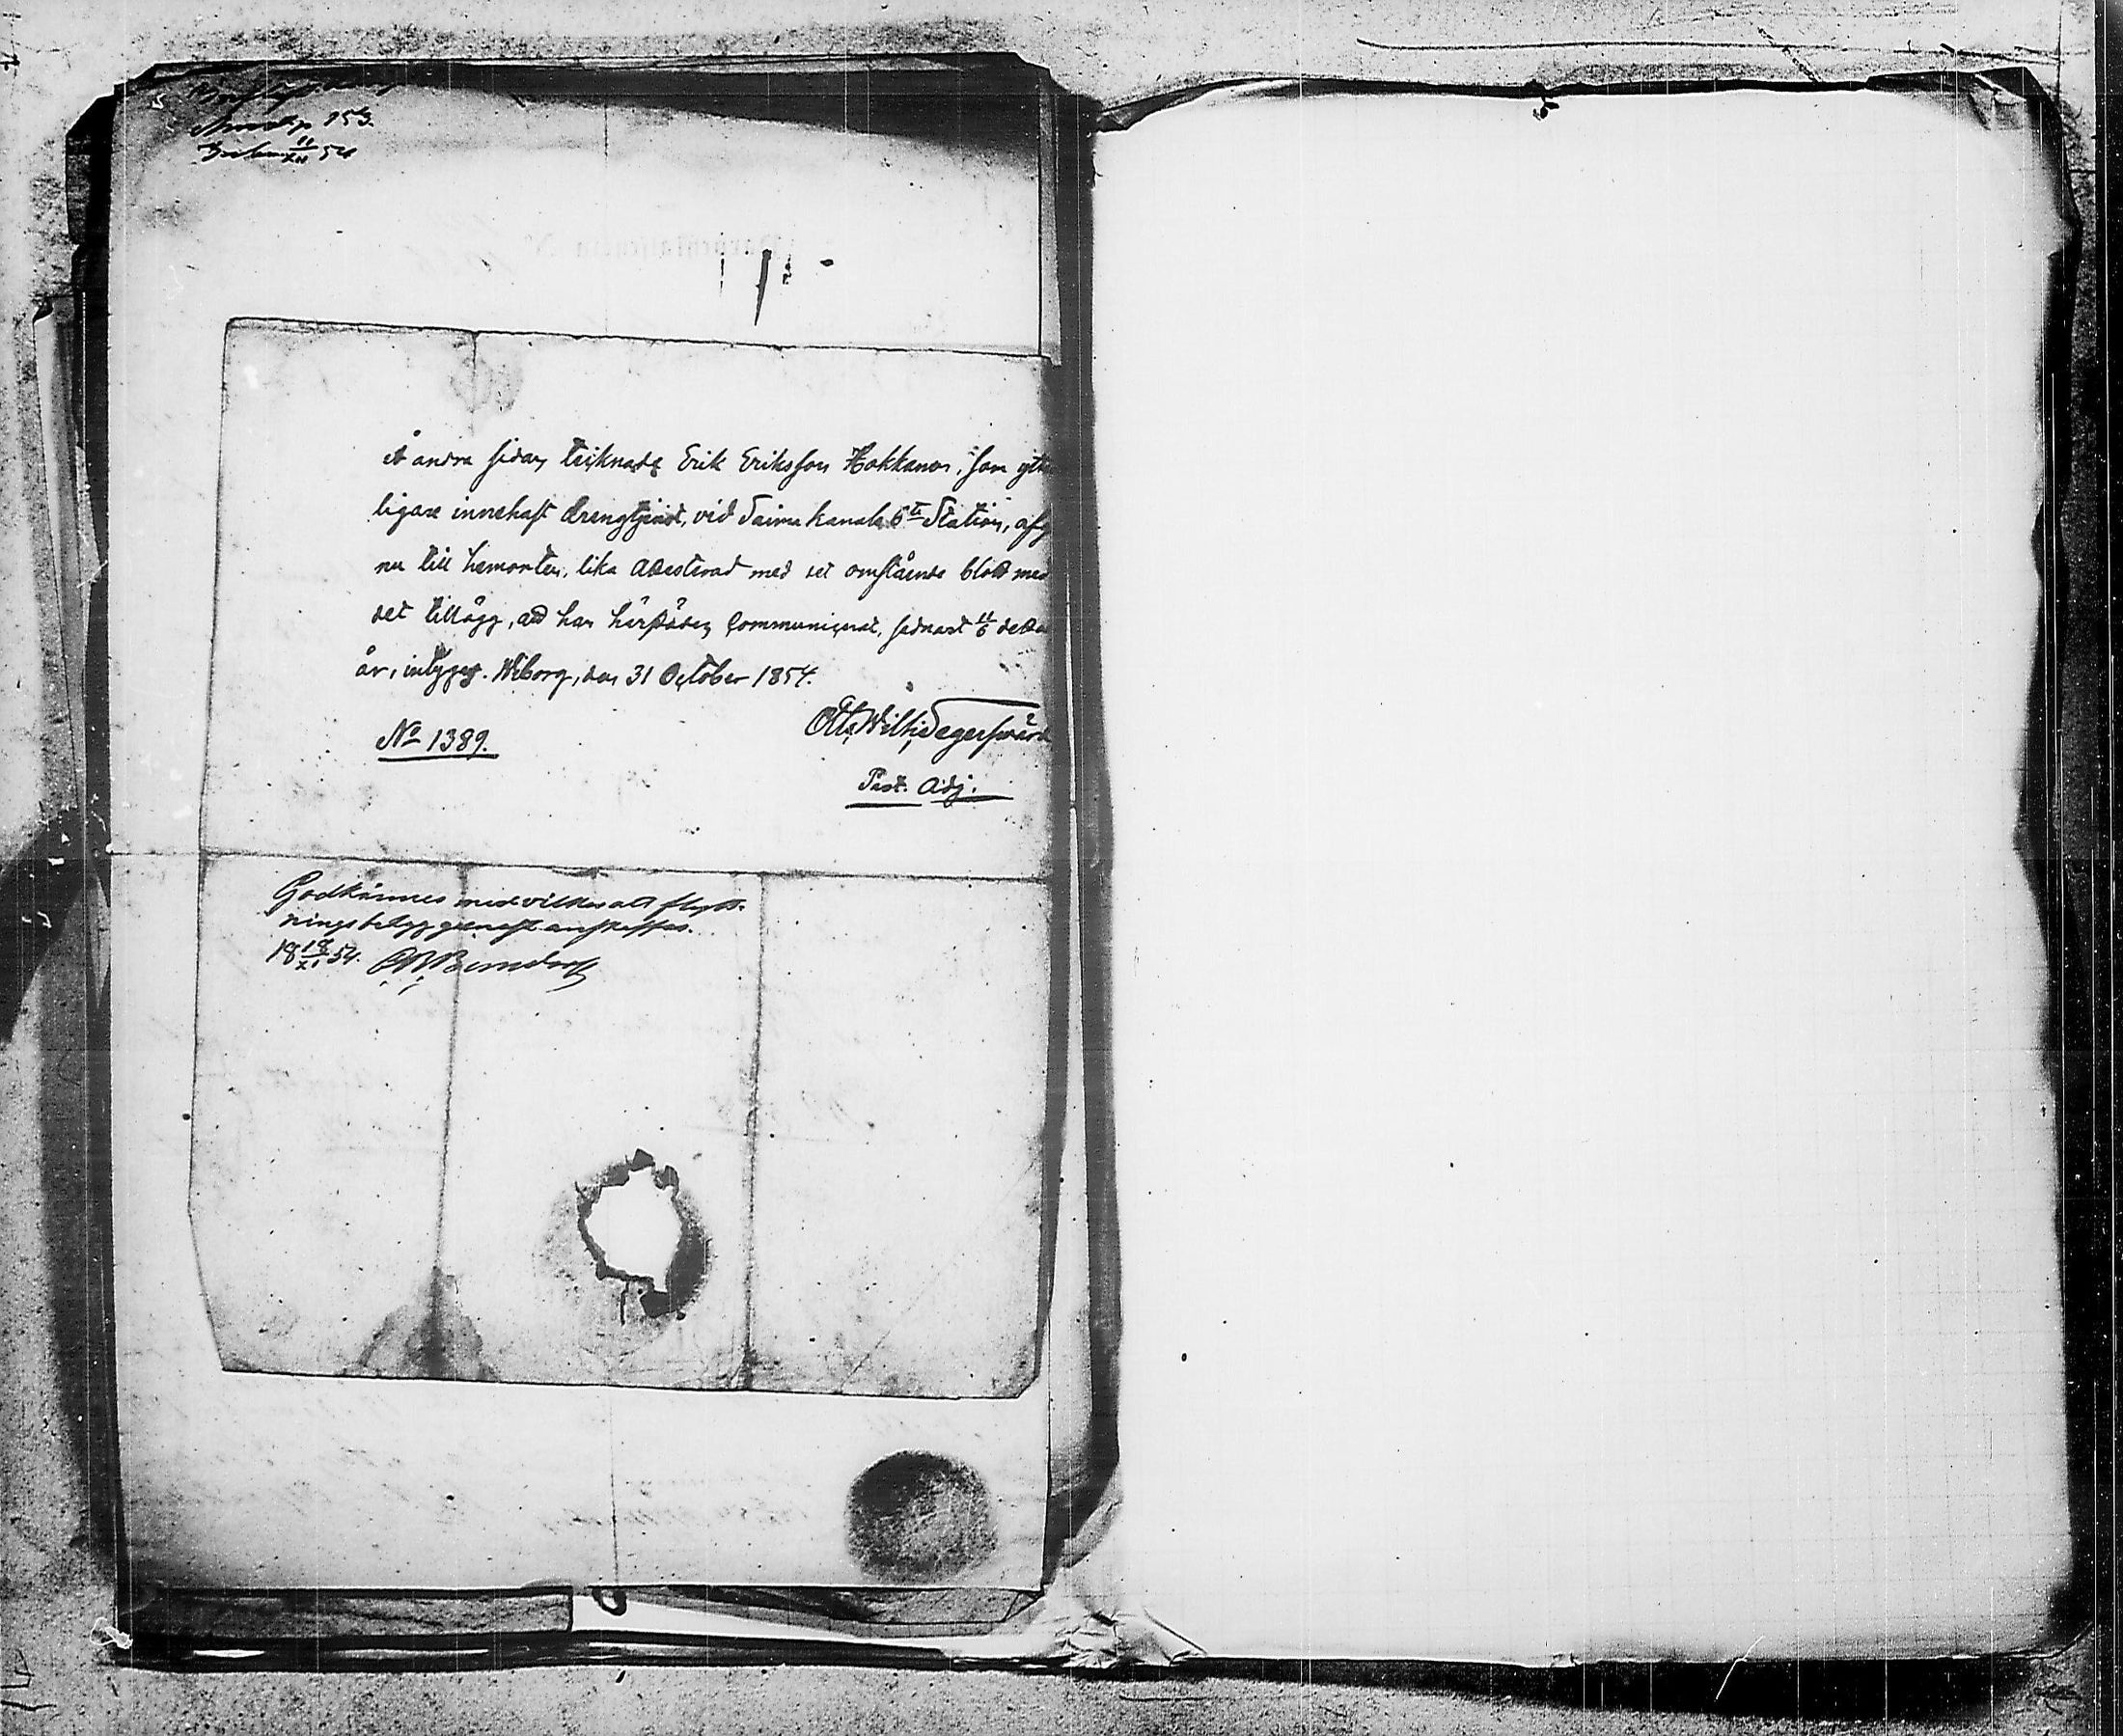 153.
11/XII 54
å andra sidan tecknade Erik Eriksson Hakkanen, som ytter
ligare innehaft drengtjenst, vid Saima kanals 6te Station, afg
nu till hemorten, lika attesterad med det omstående blott med
det tillägg, att han härstädes Communicerat, sednast 11/6 detta
år, intygas. Wiborg, den 31 October 1854.
Otto Wilh. Segersvärd
No 1389.
Past. Adj.
Godkännes med vilkor att flytt-
nings betyg genast anskaffas.
18 18/XI 54.